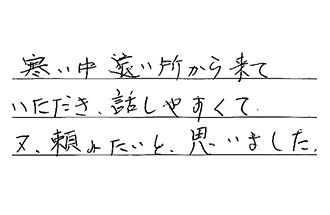 寒い中遠い所から来て
いただき、話しやすくて、
又、頼みたいと、思いました。